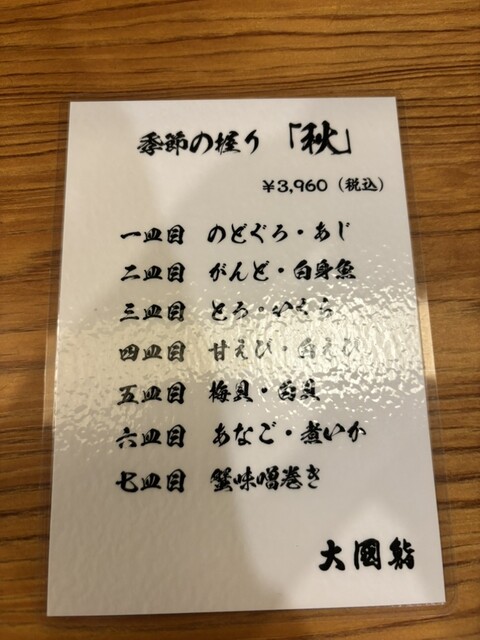 季節の握り 「秋」
￥3,960（税込）
一皿目 のどぐろ・あじ
二皿目 がんど・白身魚
三皿目 とろ・いくら
四皿目 甘えび・白えび
五皿目 梅貝・白貝
六皿目 あなご・煮いか
七皿目 蟹味噌巻き
大國鮨